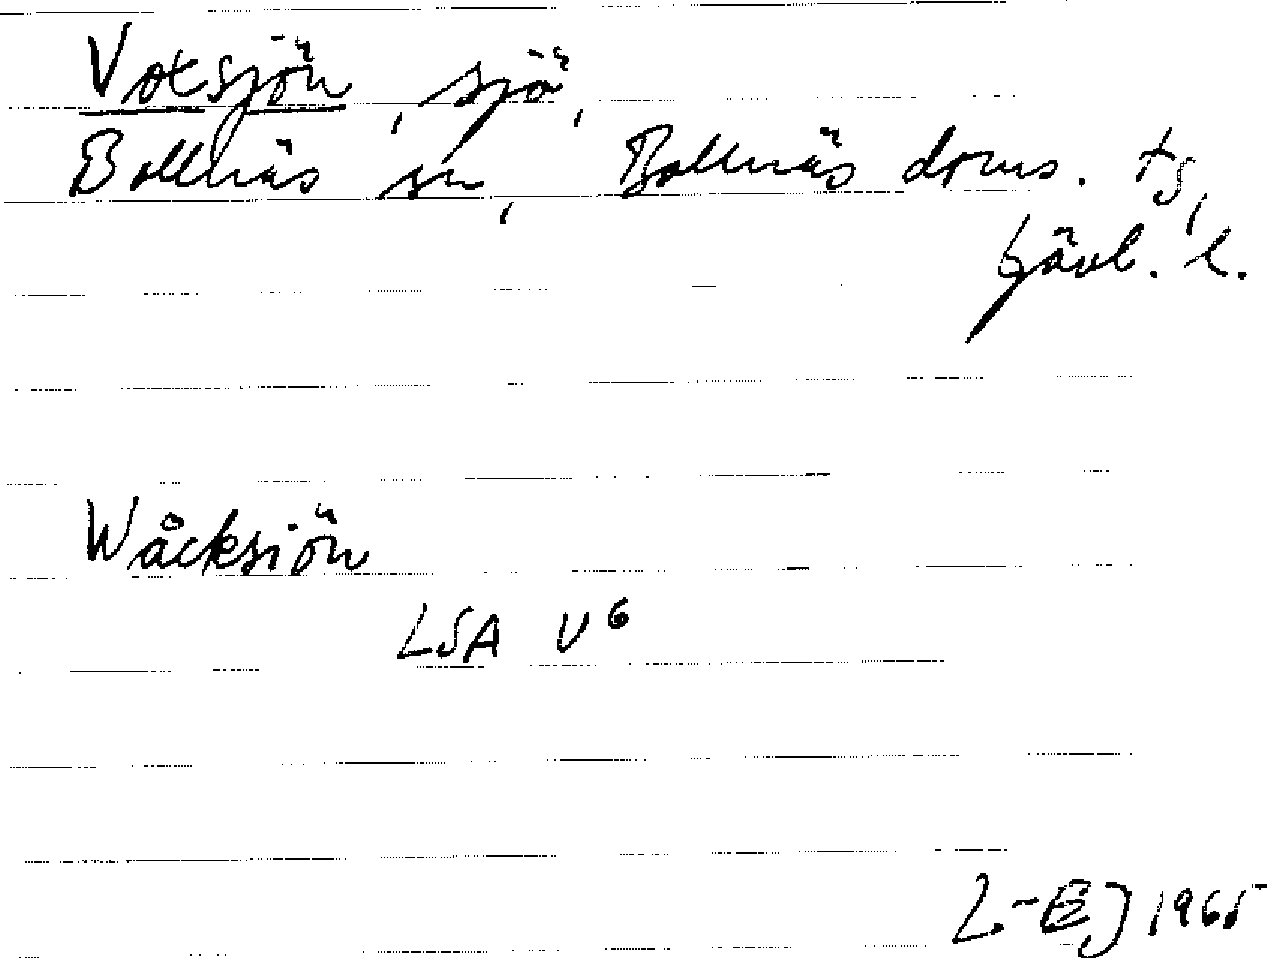 Voxsjön, sjö,
Bollnäs sn, Bollnäs doms. tg,
Gävl. l.
Wåcksiön
LSA V6
L-EJ 1965